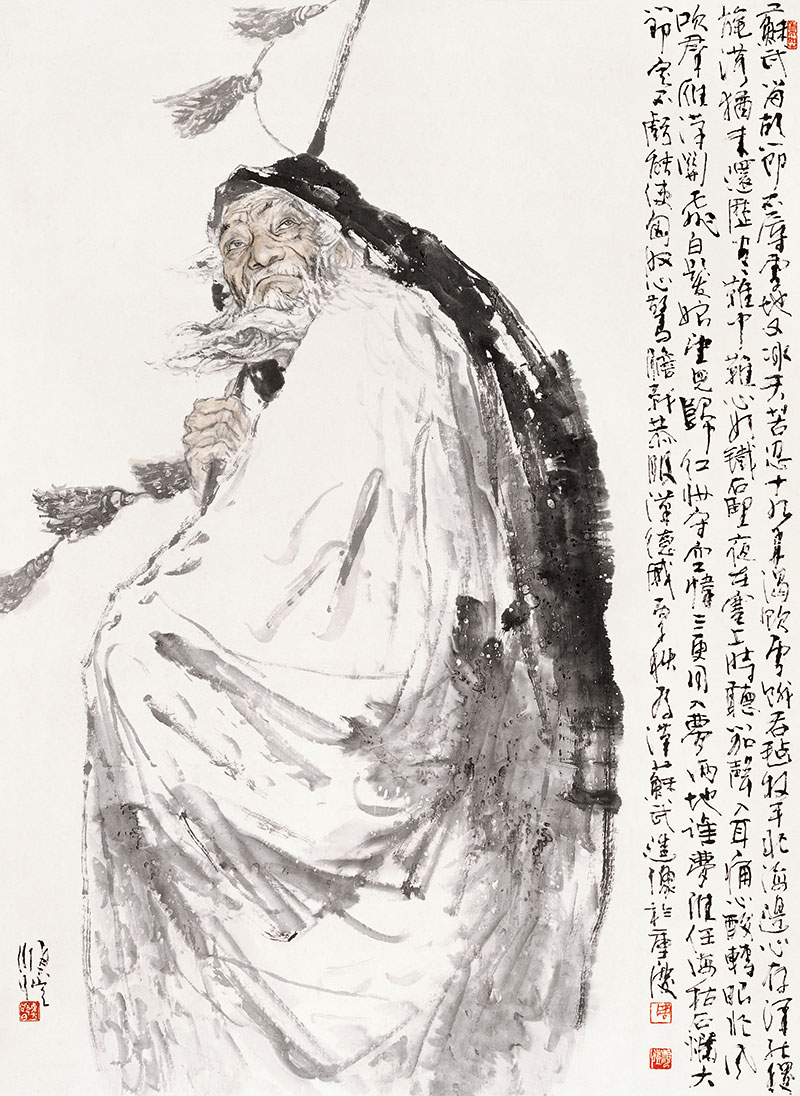 蘇武留胡節不辱雪地又冰天苦忍十九年渴飲雪飢吞氈牧羊北海邊心存漢社稷
旄落猶未還歷盡難中難心如鐵石堅夜在塞上時聽笳聲入耳痛心酸轉眼北風
吹羣雁漢關飛白髮娘望兒歸紅妝守空幃三更同入夢兩地誰夢誰任海枯石爛大
節定不虧能使匈奴心驚膽碎恭服漢德威丙子秋為漢蘇武造像於